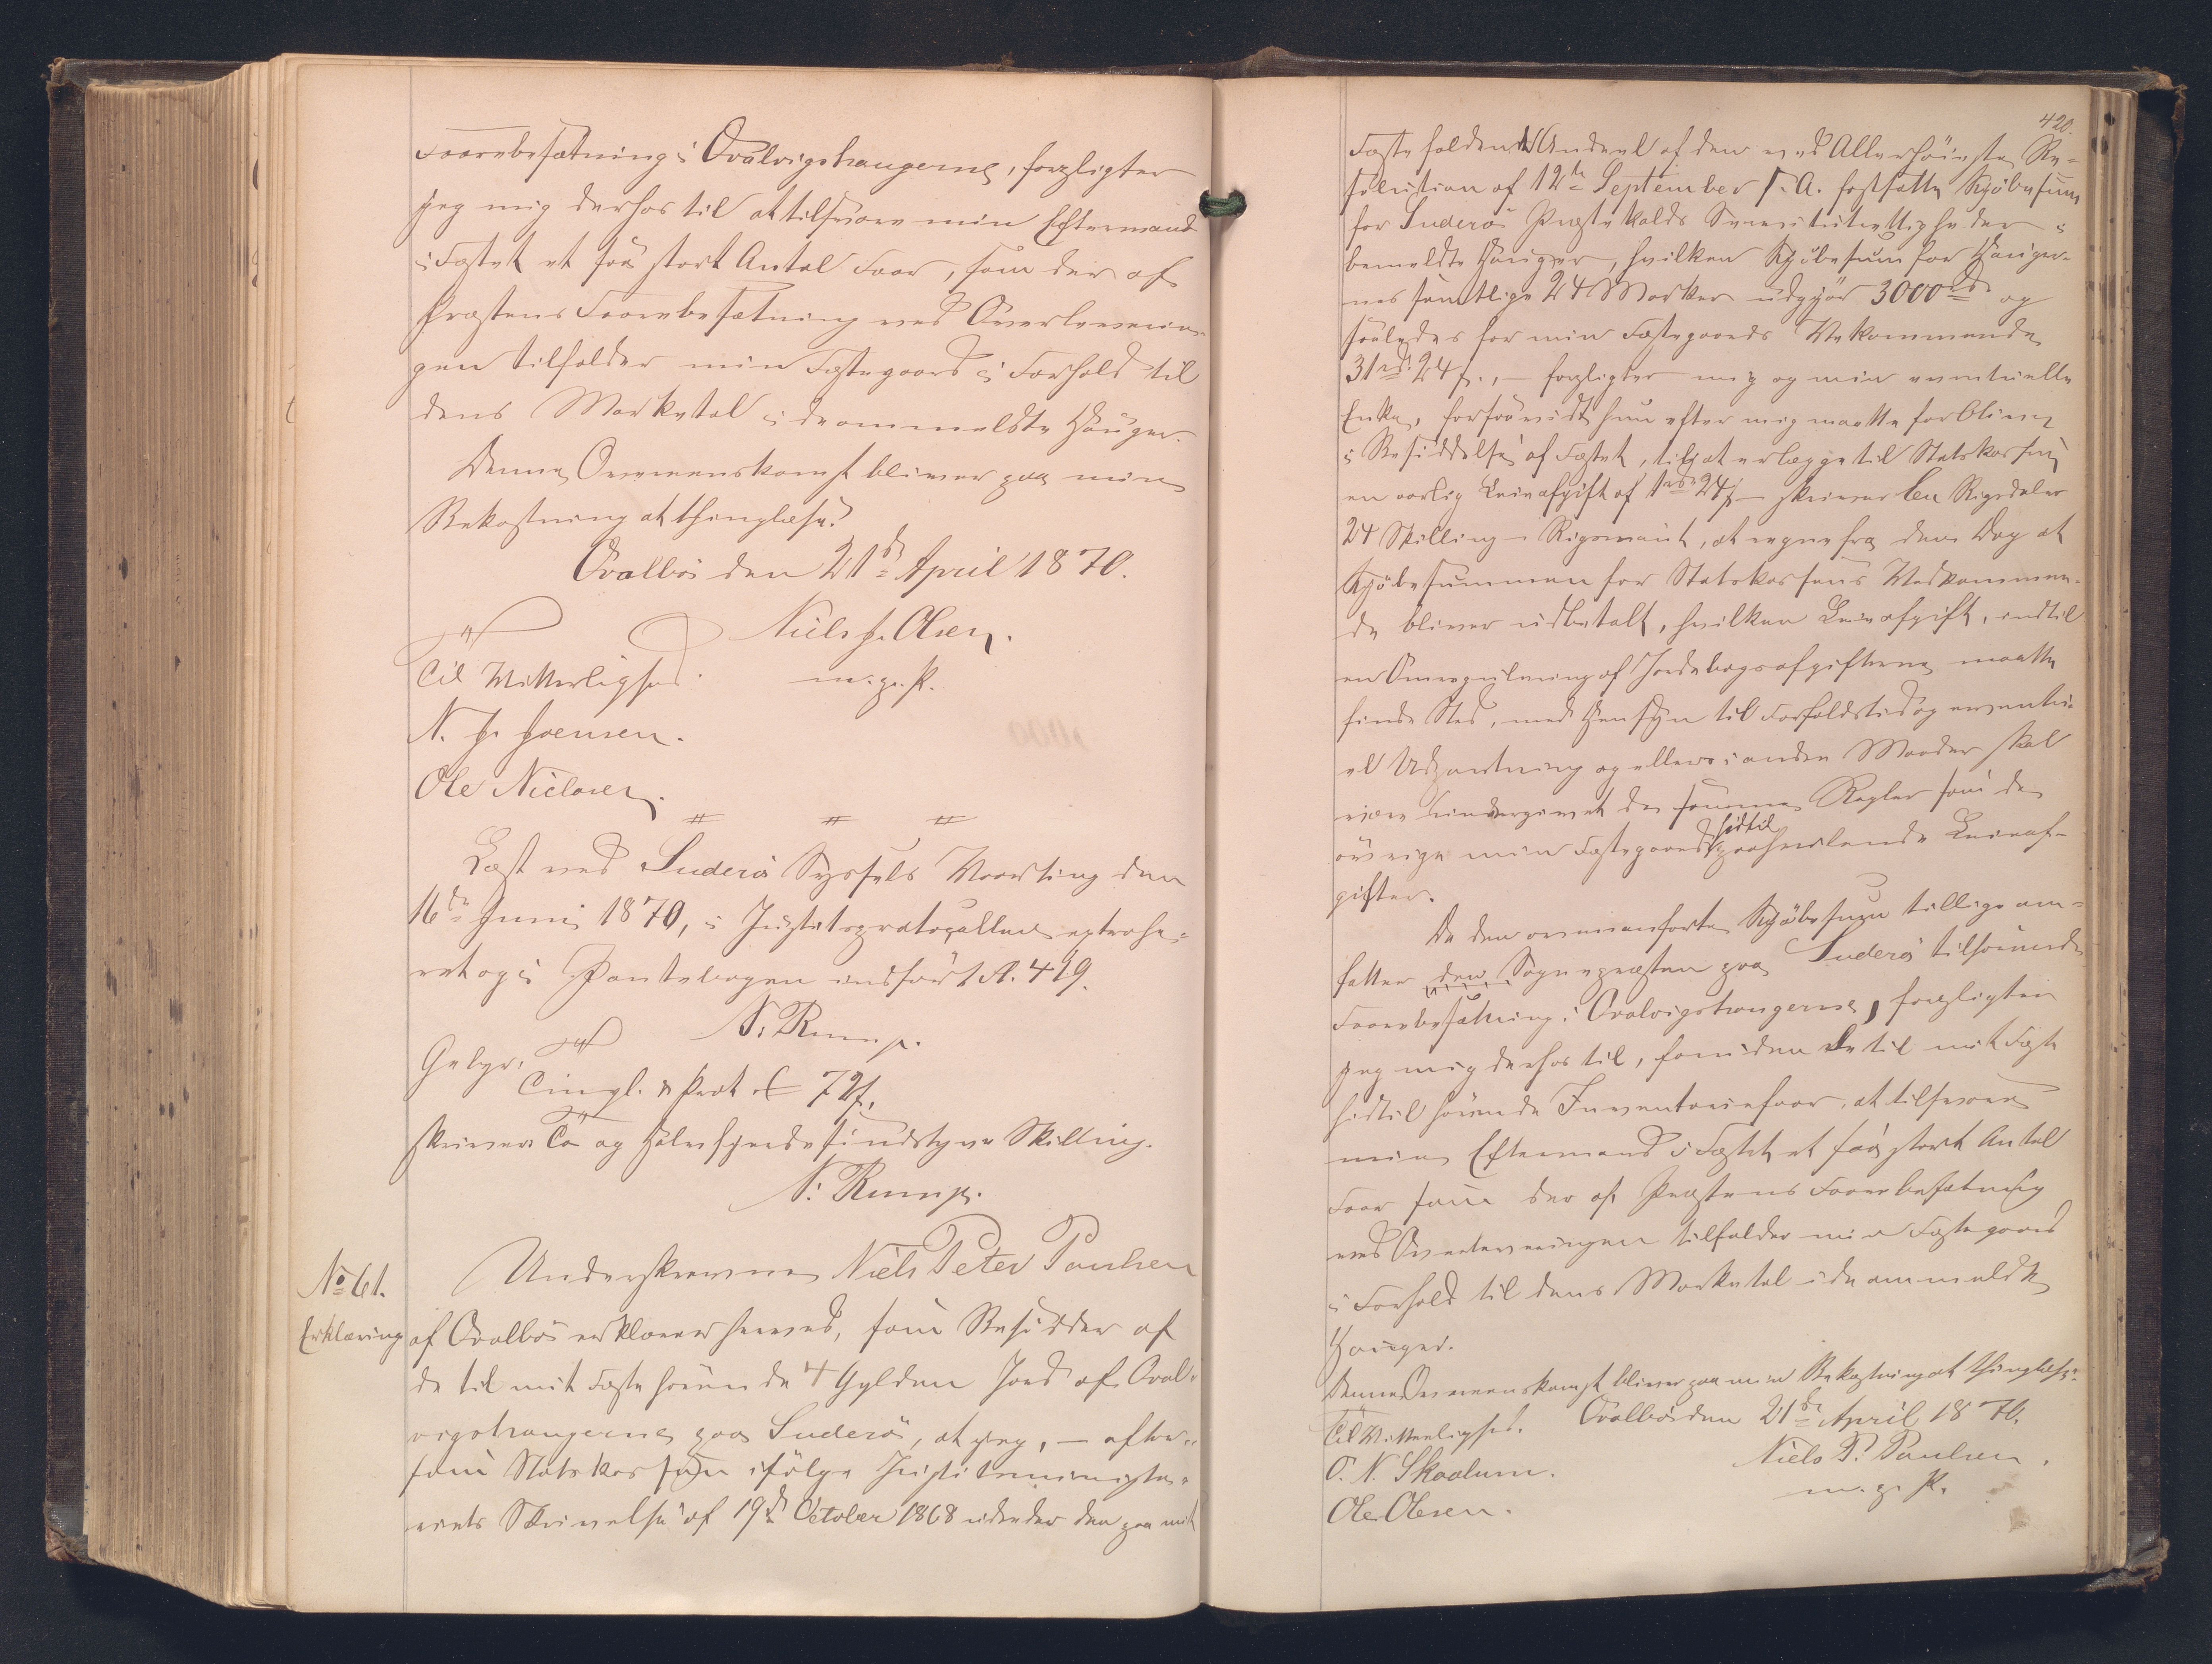 Faarebesætning i Qvalvigshaugerne, forpligter
jeg mig derhos til at tilsvare min Eftermand
i Fæstet et saa stort Antal Faar, som der af
Præstens Faarebesætning ved Overleverin-
gen tilfalder min Fæstegaard i Forhold til
dens Marketal i de ommeldte Hauger.
Denne Overeenskomst bliver paa min
Bekostning at thinglæse.
Qvalbö den 21de April 1870.
Niels J. Olsen.
Til Vitterlighed. m. p. P.
N. J. Joensen.
Ole Niclasen.
Læst ved Suderö Syssels Vaarting den
16de Juni 1870, i Justitsprotocollen extrahe-
ret og i Pantebogen indført Fol. 419.
N. Rump.
Gebyr.
Tingl. & Prot. 72 s.
skriver To og Halvfjerdsindstyve Skilling.
N. Rump.
No 61.
Erklæring
Underskrevne Niels Peter Poulsen
af Qvalbö erklærer herved, som Besidder af
de til mit Fæste hörende 4 Gylden Jord af Qval-
vigshaugerne paa Suderö, at jeg, — efter-
som Statskassen ifölge Justitsministe-
riets Skrivelse af 19de October 1868 udreder den paa mit
420.
Fæste faldende Andeel af den ved Allerhöieste Re-
solution af 12te September s. A. fastsatte Kjöbesum
for Suderö Præstekalds Servitutrettigheder i
bemeldte Hauger, hvilken Kjöbesum for Hauger-
nes samtlige 24 Marker udgjör 3000 rd og
saaledes for min Fæstegaards Vedkommende
31 rd. 24 s., — forpligter mig og min eventuelle
Enke, forsaavidt hun efter mig maatte forblive
i Besiddelse af Fæstet, til at erlægge til Statskassen
en aarlig Leieafgift af 1 rd 24 s — skriver Een Rigsdaler
24 Skilling — Rigsmönt, at regne fra den Dag at
Kjöbesummen for Statskassens Vedkommen-
de bliver udbetalt, hvilken Leieafgift, indtil
en Omregulering af Jordebogsafgifterne maatte
finde Sted, med Hensyn til Forfaldstid og eventu-
el Udpantning og ellers i andre Maader skal
være undergivet de samme Regler som de
övrige min Fæstegaard hidtil paahvilende Leieaf-
gifter.
Da den ovenanförte Kjöbesum tillige om-
fatter den Sognepræsten paa Suderö tilhörende
Faarebesætning i Qvalvigshaugerne, forpligter
jeg mig derhos til, foruden de til mit Fæste
hidtil hörende Inventariefaar, at tilsvare
min Eftermand i Fæstet et saa stort Antal
Faar som der af Præstens Faarebesætning
ved Overleveringen tilfalder min Fæstegaard
i Forhold til dens Marketal i de ommeldte
Hauger.
Denne Overeenskomst bliver paa min Bekostning at thinglæse.
Qvalbö den 21de April 1870.
Til Vitterlighed.
Niels P. Poulsen.
O. N. Skaalum.
m. p. P.
Ole Olesen.